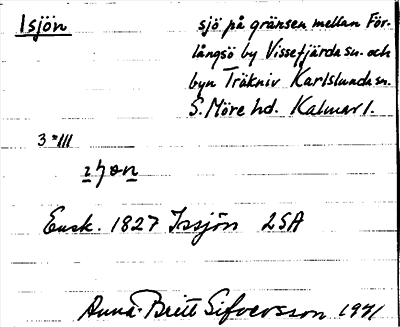 Isjön
sjö på gränsen mellan För-
långsö by Vissefjärda sn. och
byn Träkniv Karlslunda sn.
S. Möre hd. Kalmar l.
3
Ensk. 1827 Issjön LSA
Anna-Britt Sifversson 1941